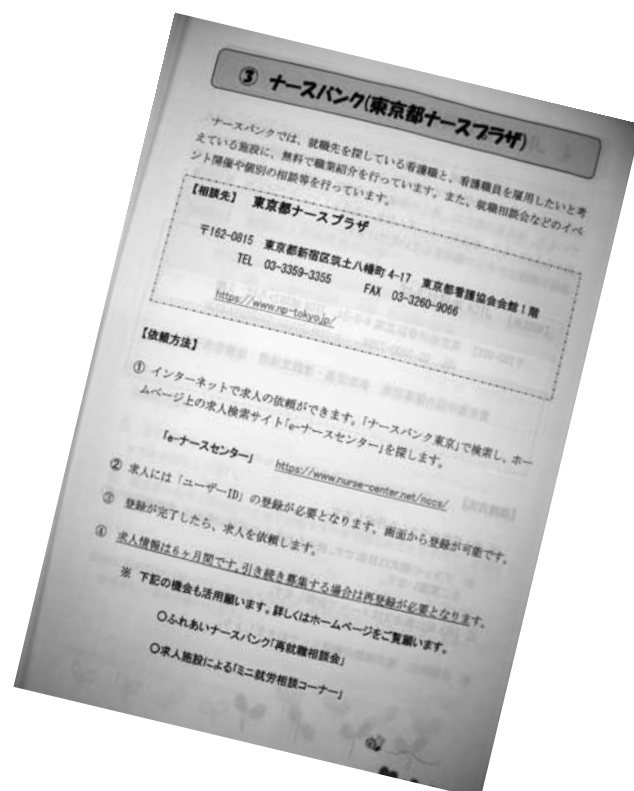 ③ ナースバンク(東京都ナースプラザ)
ナースバンクでは、就職先を探している看護職と、看護職員を雇用したいと考
えている施設に、無料で職業紹介を行っています。また、就職相談会などのイベ
ント開催や個別の相談等を行っています。
【相談先】 東京都ナースプラザ
〒162-0815 東京都新宿区筑土八幡町 4-17 東京都看護協会会館 1 階
TEL 03-3359-3355 FAX 03-3260-9066
https://www.np-tokyo.jp/
【依頼方法】
① インターネットで求人の依頼ができます。「ナースバンク東京」で検索し、ホー
ムページ上の求人検索サイト「e-ナースセンター」を探します。
「e-ナースセンター」 https://www.nurse-center.net/nccs/
② 求人には「ユーザーID」の登録が必要となります。画面から登録が可能です。
③ 登録が完了したら、求人を依頼します。
④ 求人情報は6ヶ月間です。引き続き募集する場合は再登録が必要となります。
※ 下記の機会も活用願います。詳しくはホームページをご覧願います。
○ふれあいナースバンク「再就職相談会」
○求人施設による「ミニ就労相談コーナー」